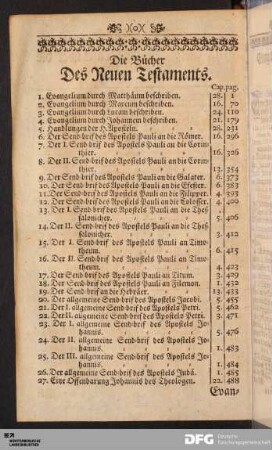 (o)
Die Bücher
Des Neuen Testaments.
Cap. pag.
1. Evangelium durch Matthäum beschriben. 28. 1
2. Evangelium durch Marcum beschriben. 16. 70
3. Evangelium durch Lucam beschriben. 24. 110
4. Evangelium durch Johannem beschriben. 21. 179
5. Handlungen der H. Aposteln. 28. 231
6. Der Send-brif des Apostels Pauli an die Römer. 16. 296
7. Der I. Send-brif des Apostels Pauli an die Corin-
thier. 16. 326
8. Der II. Send-brif des Apostels Pauli an die Corin-
thier. 13. 354
9. Der Send-brif des Apostels Pauli an die Galater. 6. 372
10. Der Send-brif des Apostels Pauli an die Efesier. 6. 383
11. Der Send-brif des Apostels Pauli an die Filipper. 4. 393
12. Der Send-brif des Apostels Pauli an die Colosser. 4. 400
13. Der I. Send-brif des Apostels Pauli an die Thes-
salonicher. 5. 406
14. Der II. Send-brif des Apostels Pauli an die Thes-
salonicher. 3. 412
15. Der I. Send-brif des Apostels Pauli an Timo-
theum. 6. 415
16. Der II. Send-brif des Apostels Pauli an Timo-
theum. 4. 423
17. Der Send-brif des Apostels Pauli an Titum. 3. 429
18. Der Send-brif des Apostels Pauli an Filemon. 1. 432
19. Der Send-brif an die Hebräer. 13. 433
20. Der allgemeine Send-brif des Apostels Jacobi. 5. 455
21. Der I. allgemeine Send-brif des Apostels Petri. 5. 462
22. Der II. allgemeine Send-brif des Apostels Petri. 3. 471
23. Der I. allgemeine Send-brif des Apostels Jo-
hannis. 5. 476
24. Der II. allgemeine Send-brif des Apostels Jo-
hannis. 1. 483
25. Der III. allgemeine Send-brif des Apostels Jo-
hannis. 1. 484
26. Der allgemeine Send-brif des Apostels Judä. 1. 485
27. Eine Offenbarung Johannis des Theologen. 22. 488
Evan-
DFG Deutsche
Forschungsgemeinschaft